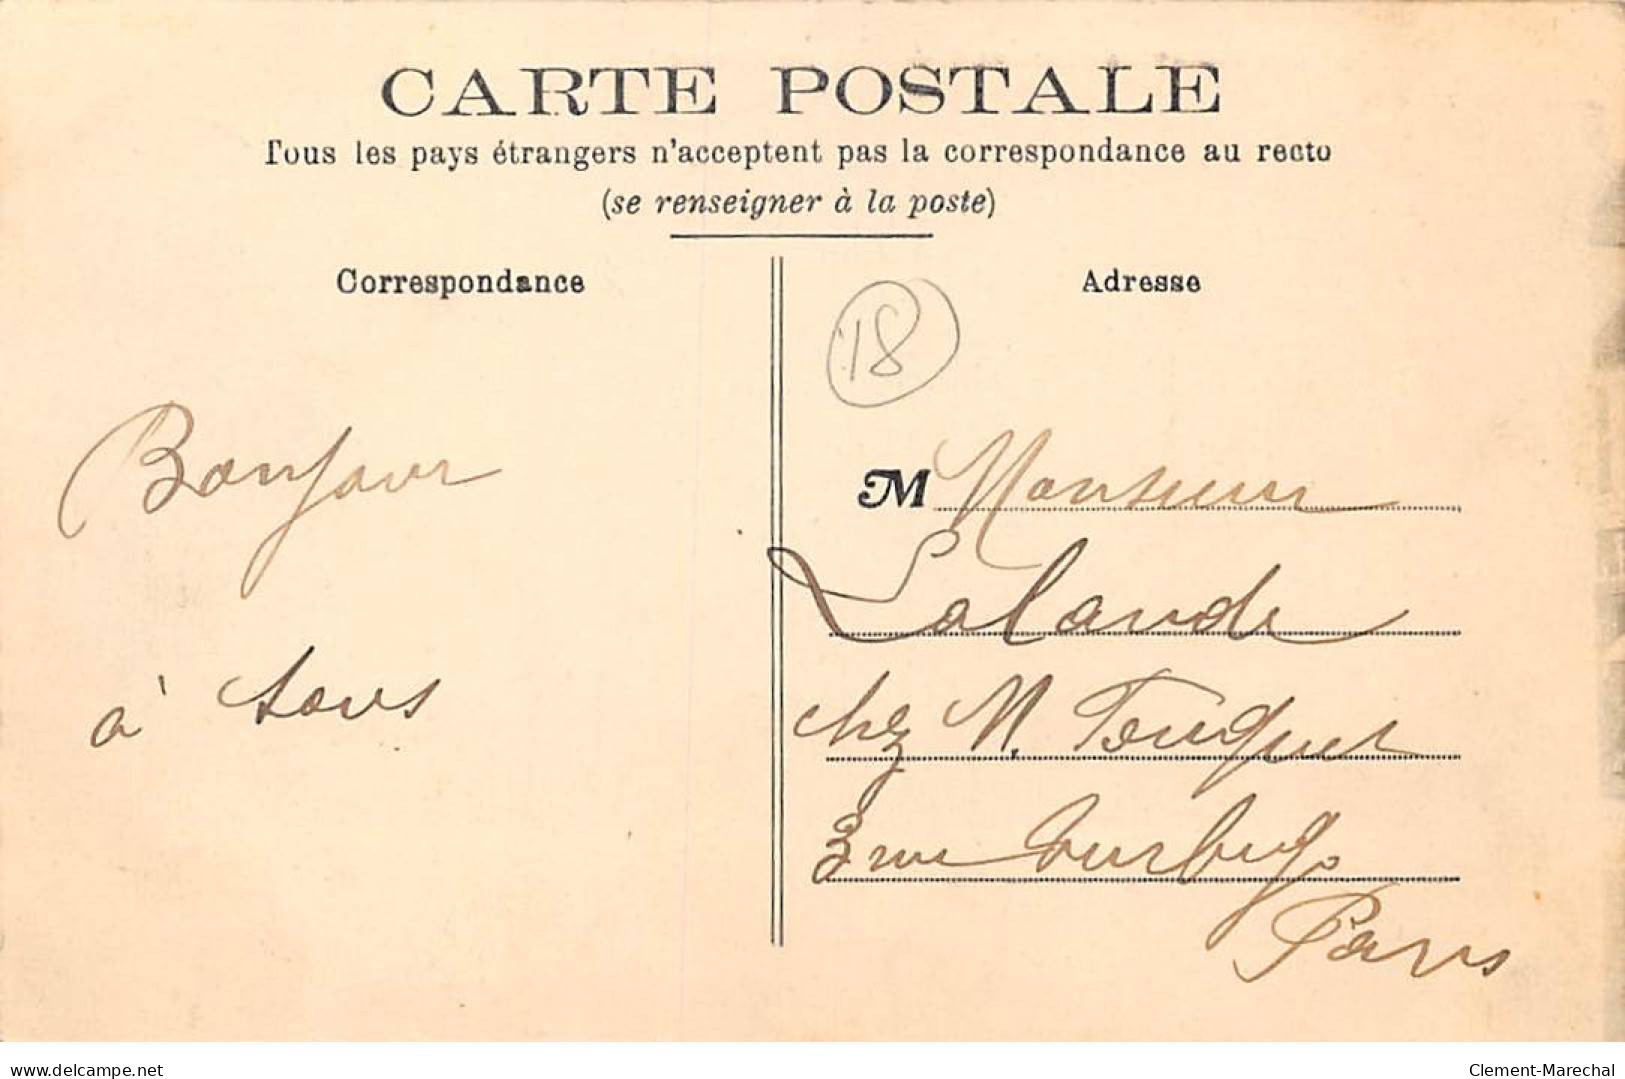 CARTE POSTALE
Tous les pays étrangers n'acceptent pas la correspondance au recto
(se renseigner à la poste)
Correspondance
Adresse
18
Bonjour
à tous
M Monsieur
Lalande
chez M. Touquet
3 rue Turbigo
Paris
www.delcampe.net
Clement-Marechal